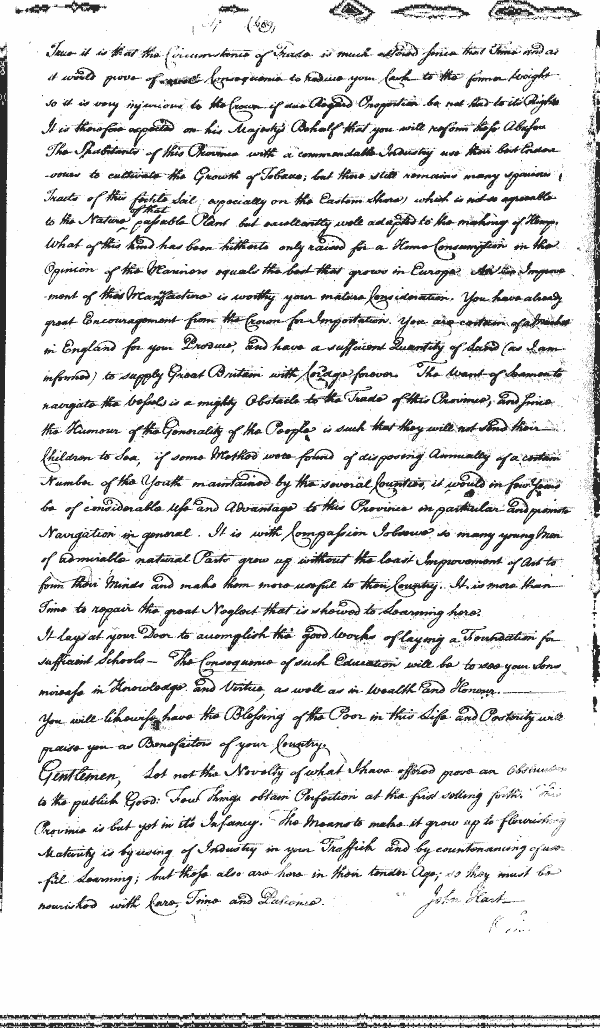 (409)
True it is that the Circumstance of Trade is much altered since that Time and as
it would prove of Consequence to reduce your Cash to the former Weight
so it is very injurious to the Crown if due Regard Proportion be not had to its Rights
It is therefore expected on his Majestys Behalf that you will reform these Abuses
The Inhabitants of this Province with a commendable Industry use their best Endea-
-vours to cultivate the Growth of Tobaco; but there still remains many spacious
Tracts of this fertile Soil, especially on the Eastern Shore) which is not so agreeable
to the Nature of that saleable Plant but excellently well adapted to the making of Hemp.
What of this kind has been hitherto only raised for a Home Consumption in the
Opinion of the Mariners equals the best that grows in Europe Improve
ment of this Manufacture is worthy your mature Consideration. You have already
great Encouragement from the Crown for Importation. You are certain of a Market
in England for your Produce, and have a sufficient Quantity of Land (as I am
informed) to supply Great Britain with Cordage forever. The Want of Seamen to
navigate the Vessels is a mighty Obstacle to the Trade of this Province; and since
the Humour of the Generality of the People is such that they will not send their
Children to Sea, if some Method were found of disposing Annually of a certain
Number of the Youth maintained by the several Counties, it would in few Years
be of considerable Use and Advantage to this Province in particular and promote
Navigation in general. It is with Compassion I observe so many young Men
of admirable natural Parts grow up without the least Improvement of Art to
form their Minds and make them more useful to their Country. It is more than
Time to repair the great Neglect that is shewed to Learning here.
It lays at your Door to acomplish the good Works of laying a Foundation for
sufficient Schools — The Consequence of such Education will be to see your Sons
increase in Knowledge and Virtue, as well as in Wealth and Honour.
You will likewise have the Blessing of the Poor in this Life and Posterity will
praise you as Benefactors of your Country.
Gentlemen, Let not the Novelty of what I have offered prove an Obstruction
to the publick Good: Few Things obtain Perfection at the first setting forth. This
Province is but yet in its Infancy. The Means to make it grow up to flourishing
Maturity is by using of Industry in your Traffick and by countenancing of use-
-full Learning; but these also are here in their tender Age; so they must be
nourished with Care, Time and Patience.
John Hart